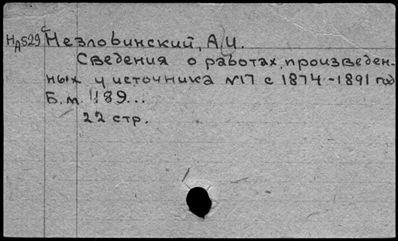 НД529 Незловинский, А.И.
Сведения о работах, произведен-
ных у источника №17 с 1874-1891 год
Б.м. 189...
22 стр.